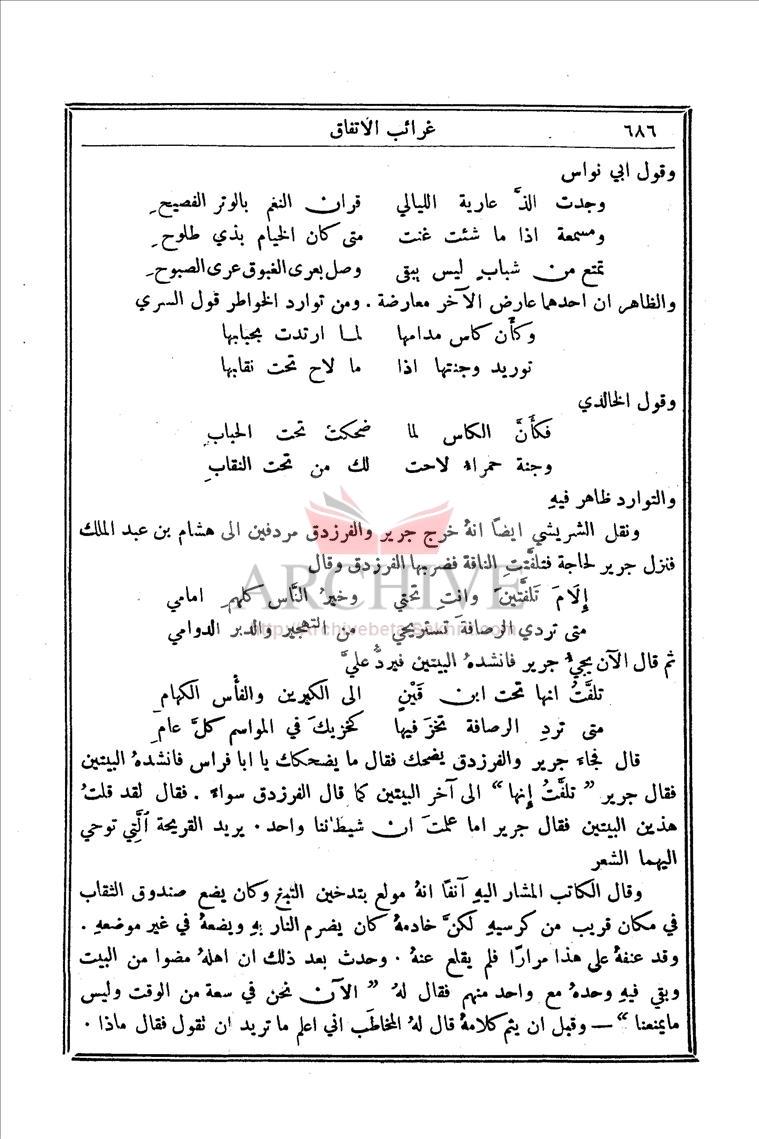 ٦٨٦ غرائب الاتفاق
وقول ابي نواس
وجدت الذَّ عارية الليالي قران النغم بالوتر الفصيحِ
ومسمعة اذا ما شئت غنت متى كان الخيام بذي طلوحِ
تمتع من شبابٍ ليس يبقى وصل بعرى الغبوق عرى الصبوحِ
والظاهر ان احدهما عارض الآخر معارضة . ومن توارد الخواطر قول السري
وكأَن كاس مدامها لما ارتدت بحبابها
توريد وجنتها اذا ما لاح تحت نقابها
وقول الخالدي
فكأَنَّ الكاس لما ضحكت تحت الحبابِ
وجنة حمراء لاحت لك من تحت النقابِ
والتوارد ظاهر فيهِ
ونقل الشريشي ايضاً انهُ خرج جرير والفرزدق مردفين الى هشام بن عبد الملك
فنزل جرير لحاجة فتلفَّتتِ الناقة فضربها الفرزدق وقال
إِلامَ تَلفَّتينَ وانتِ تحتي وخيرُ النَّاس كلهمِ امامي
متى تردي الرصافةَ تستريحي من التهجير والدبر الدوامي
ثم قال الآن يجيء جرير فانشدهُ البيتين فيردُّ عليَّ
تلفَّتُ انها تحت ابن قَينٍ الى الكيرين والفأس الكهامِ
متى تردِ الرصافة تخزَ فيها كخزيكَ في المواسم كلَّ عامِ
قال فجاء جرير والفرزدق يضحك فقال ما يضحكك يا ابا فراس فانشدهُ البيتين
فقال جرير " تلفَّتُ إِنها " الى آخر البيتين كما قال الفرزدق سواء . فقال لقد قلتُ
هذين البيتين فقال جرير اما علمتَ ان شيطاننا واحد . يريد القريحة الَّتي توحي
اليهما الشعر
وقال الكاتب المشار اليهِ آنفاً انهُ مولع بتدخين التبغ وكان يضع صندوق الثقاب
في مكان قريب من كرسيهِ لكنَّ خادمهُ كان يضرم النار بهِ ويضعهُ في غير موضعهِ .
وقد عنفهُ على هذا مراراً فلم يقلع عنهُ . وحدث بعد ذلك ان اهلهُ مضوا من البيت
وبقي فيهِ وحدهُ مع واحد منهم فقال لهُ " الآن نحن في سعة من الوقت وليس
مايمنعنا " — وقبل ان يتم كلامهُ قال لهُ المخاطَب اني اعلم ما تريد ان تقول فقال ماذا .
ARCHIVE
http://Archivebeta.Sakhrit.com